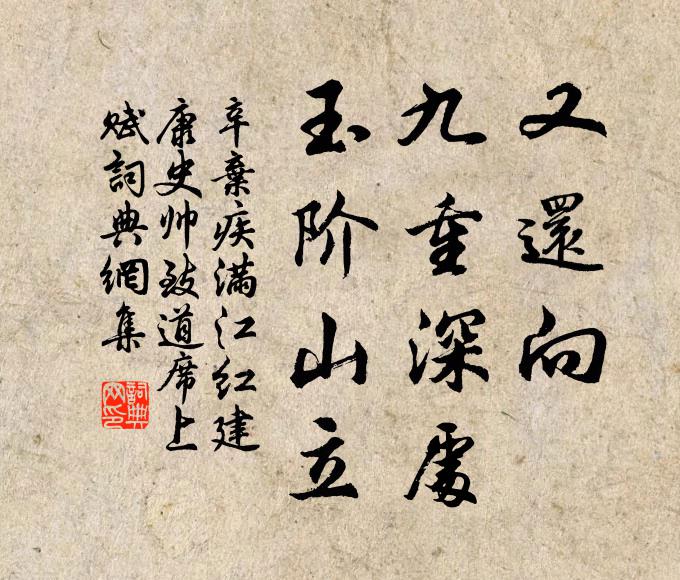 又還向
九重深處
玉阶山立
辛棄疾滿江紅建
康史帅致道席上
赋詞典網集
詞典网印